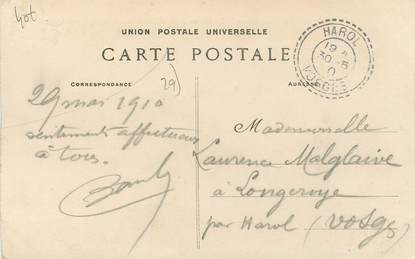 UNION POSTALE UNIVERSELLE
CARTE POSTALE
CORRESPONDANCE
29
ADRESSE
HAROL
19
30-5
VOSGES
29 mai 1910
sentiments affectueux
à tous.
Mademoiselle
Laurence Malglaive
à Longeroye
par Harol (Vosges)